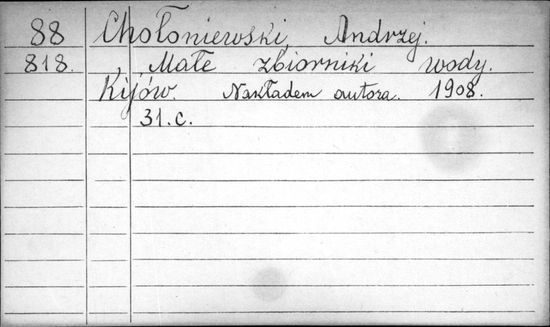 88 Chołoniewski, Andrzej.
818. Małe zbiorniki wody.
Kijów. Nakładem autora. 1908.
31. c.